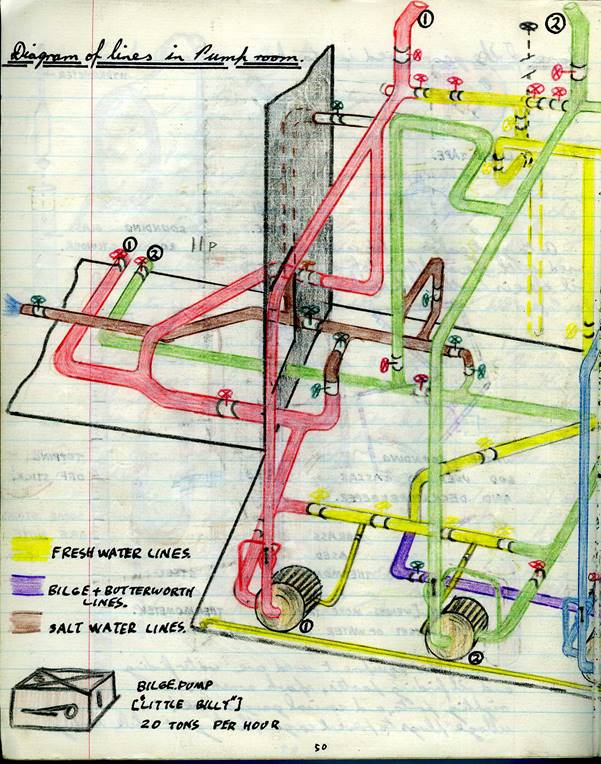 Diagram of lines in Pump room.
1
2
1
2
11P
1
2
FRESHWATER LINES.
BILGE + BUTTERWORTH
LINES.
SALT WATER LINES.
BILGE PUMP
["LITTLE BILLY"]
20 TONS PER HOUR
50